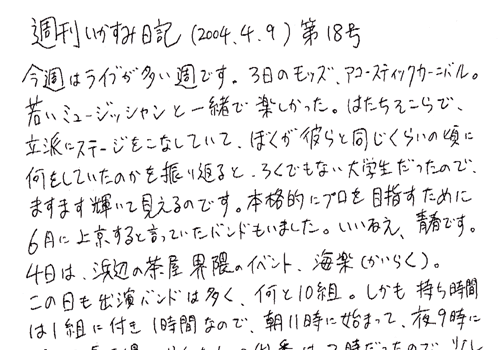 週刊いかすみ日記 (2004.4.9) 第18号
今週はライブが多い週です。3日のモッズ、アコースティックカーニバル。
若いミュージッシャンと一緒で楽しかった。はたちそこらで、
立派にステージをこなしていて、ぼくが彼らと同じくらいの頃に
何をしていたのかを振り返ると、ろくでもない大学生だったので、
ますます輝いて見えるのです。本格的にプロを目指すために
6月に上京すると言っていたバンドもいました。いいねえ、青春です。
4日は、浜辺の茶屋界隈のイベント、海楽(かいらく)。
この日も出演バンドは多く、何と10組。しかも持ち時間
は1組に付き1時間なので、朝11時に始まって、夜9時に